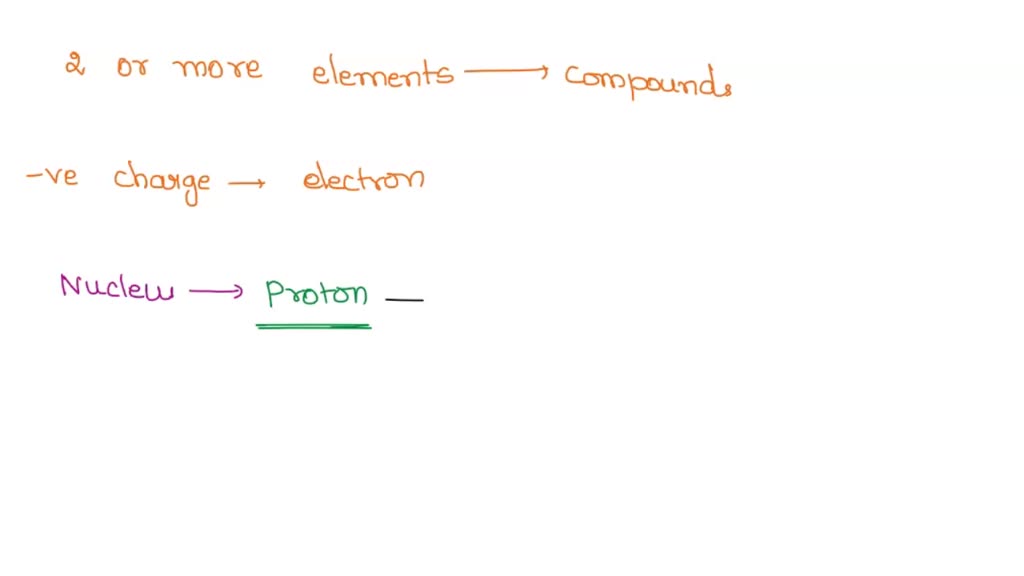 2 or more elements → compounds
-ve charge → electron
Nucleus → Proton —